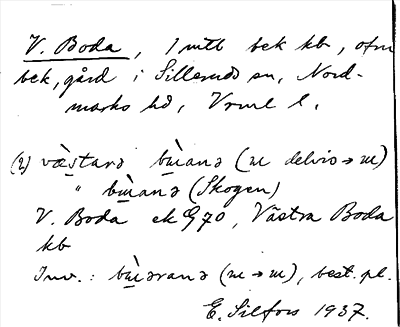 V. Boda, 1 mtl bek kb, ofm
bek, gård i Silleruds sn, Nord-
marks hd, Vrml l.
(2) væ̀starə bɯ̀anə (ɯ delvis → ɯ)
" bɯ̀anə (Skogen)
V. Boda ek G70, Västra Boda
kb
Inv.: bɯ̀əranə (ɯ → ɯ), best. pl.
E. Silfors 1937.